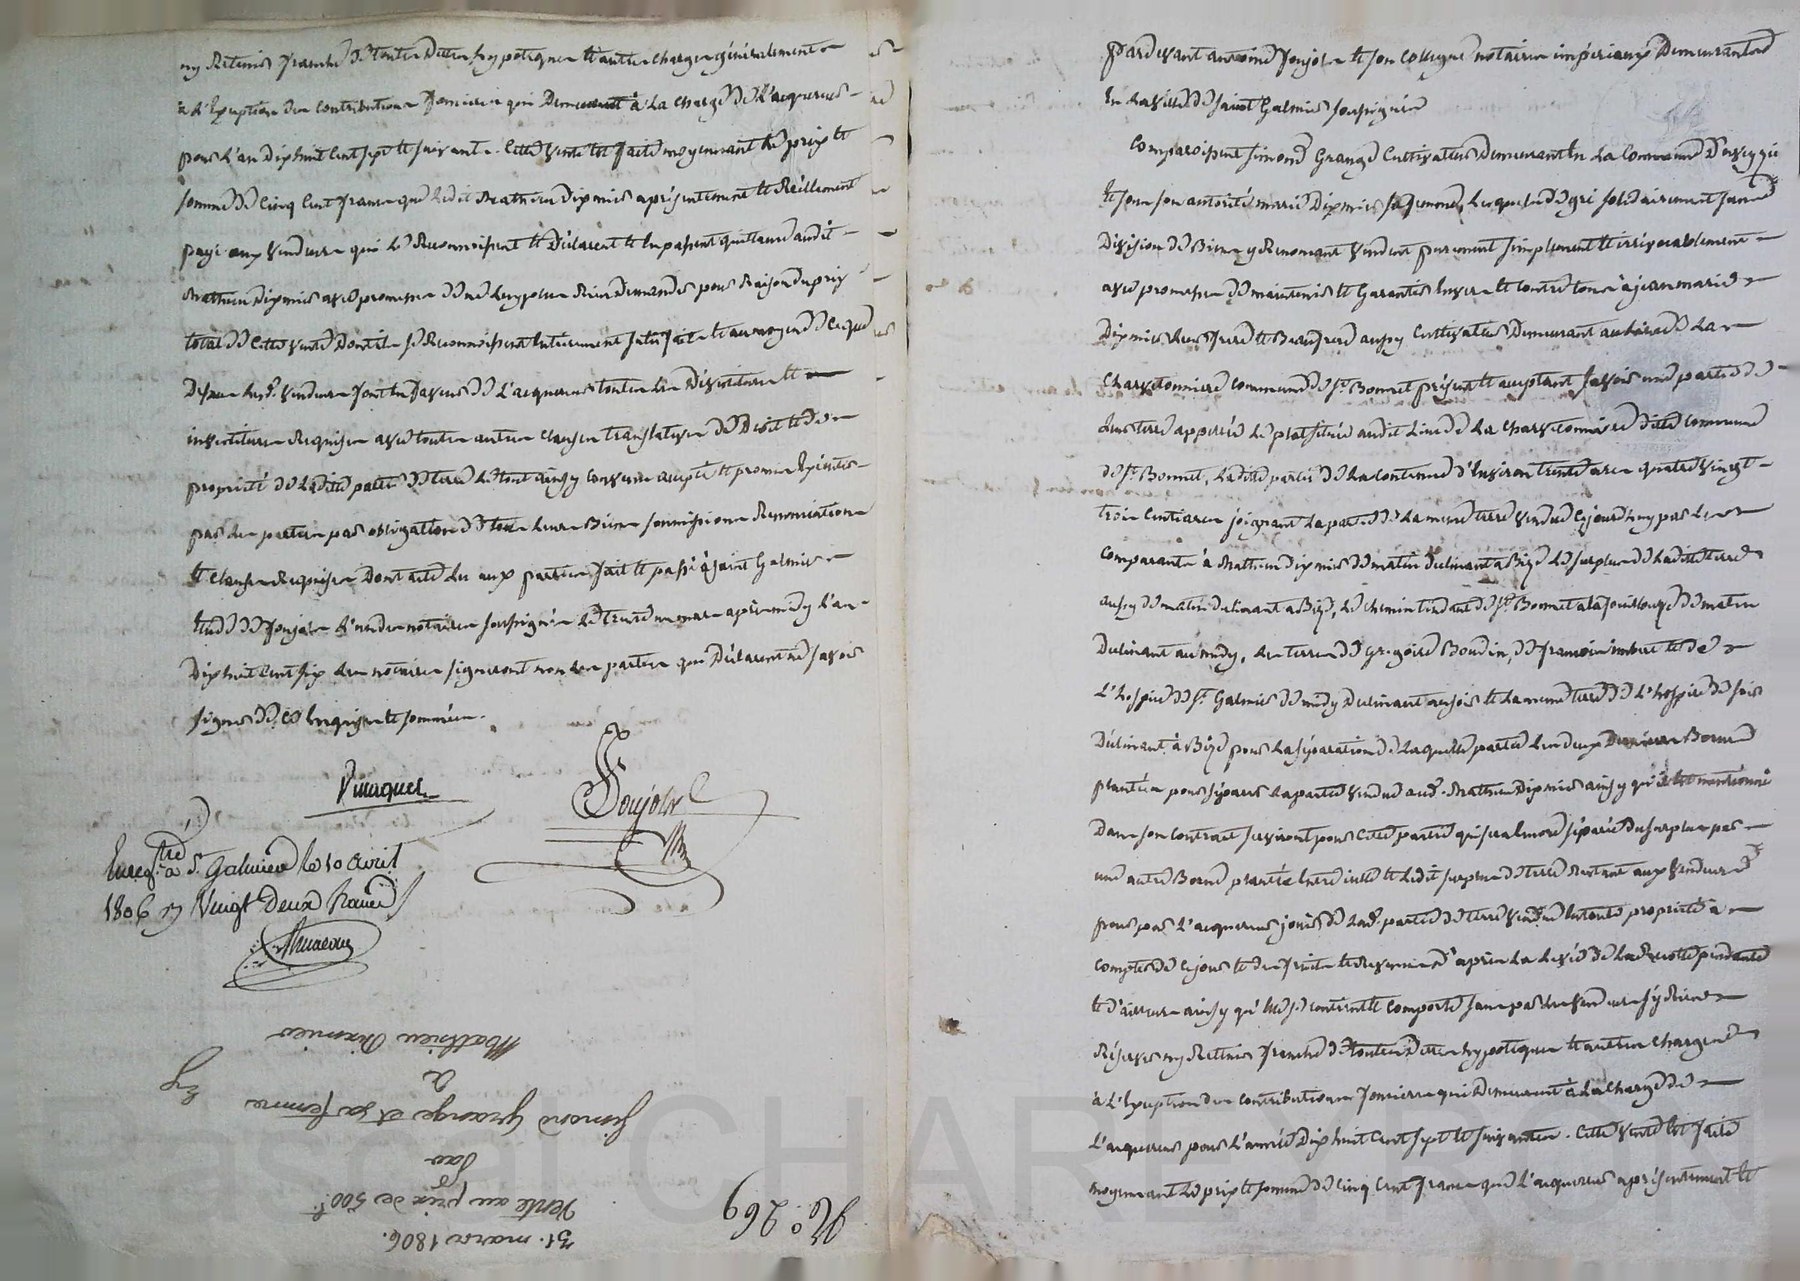 ny Retenir franche de toutes dettes hypoteques et autres charges généralement
à l'Exeption des Contributions foncieres qui Demeurent à la charge de l'acquereur
pour l'an Dix huit Cent sept et suivants. Cette vente est faite moyennant le prix et
somme de Cinq Cent francs que ledit Mathieu Dixmier a présentement et Réellement
payé aux vendeurs qui le Reconnoissent et Déclarent et En passent quittance audit
Mathieu Dixmier avec promesse de ne luy plus Rien Demander pour Raison du prix
total de Cette vente Dont ils se Reconnoissent Entierement satisfaits et au moyen de Ce que
Dessus lesd. vendeurs font En faveur de l'acquereur toutes les Dévestitures et
investitures Requises avec toutes autres clauses translatives de Droit et de
propriété de Ladite partie de terre Le tout ainsy convenu accepté et promis Exécuter
par les parties par obligation de tous leurs Biens soumissions Renonciations
et clauses Requises Dont acte Lu aux parties fait et passé à Saint Galmier
Etude de Joujols l'un des notaires soussignés Le trente un mars après midy l'an
Dix huit Cent six Les notaires signeront non les parties qui Déclarent ne savoir
signer de Ce Enquises et sommées.
Joujols
Enregtré à St. Galmier le 10 avril
1806 Vingt Deux francs
pardevant antoine Joujols et son Collegue notaires impériaux Demeurants
En la ville de Saint Galmier soussignés
Comparoissent Simond Grange Cultivateur Demeurant En la Commune D'aveyzieu
et sous son autorité marie Dixmier sa femme, Lesquels de gré solidairement sans
Division de Biens y Renoncant Vendent purement simplement et irrévocablement
avec promesse de maintenir et Garantir Envers et contre tous à jean marie
Dixmier leur frere et Beaufrere aussy Cultivateur Demeurant au lieu de La
Charvetonniere commune de St. Bonnet présent et acceptant Savoir une partie de
Leur terre appellée Le plat située audit Lieu de La Charvetonniere dite Commune
de St. Bonnet, Ladite partie de la contenue d'Environ trente ares quatre vingt
trois Centiares joignant la partie de La meme terre vendue Cejourd'huy par Les
comparants à Mathieu Dixmier de matin Déclinant à Bize Le surplus de Ladite terre
aussy de matin Déclinant à Bize, Le chemin tendant de St. Bonnet à la fouillouse de matin
Déclinant au midy, Les terres de Gregoire Boudin, de francois imbert et de
L'hospice de St. Galmier de midy Déclinant au soir et La meme terre de L'hospice de soir
Déclinant à Bize pour la séparation de Laquelle partie Les deux Dernieres Bornes
plantées pour séparer La partie vendue aud. Mathieu Dixmier ainsy qu'il est mentionné
Dans son Contrat serviront pour Cette partie qui sera Encore séparée du surplus par
une autre Borne plantée Entre icelle et Ledit surplus de terre Restant aux vendeurs
pour par L'acquereur jouir de Lad. partie de terre vendue En toute propriété à
compter de Cejour et des fruits et Revenus après La Levée de La Récolte pendante
et d'ailleurs ainsy qu'Elle se contient et comporte sans par les vendeurs s'y Rien
Réserver ny Retenir franche de toutes Dettes hypoteques et autres charges
à L'Exeption des Contributions foncieres qui Demeurent à La charge de
L'acquereur pour L'année Dix huit Cent sept et suivantes. Cette vente est faite
moyennant Le prix et somme de Cinq Cent francs que L'acquereur a présentement et
No. 269
31. mars 1806.
Vente au prix de 500 f.
par
Simond Grange et sa femme
à
Mathieu Dixmier
Pascal CHAREYRON